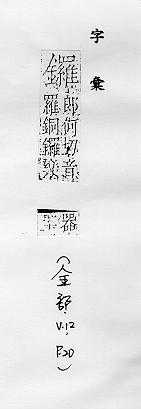 字彙
鑼
郎何切音
羅銅鑼樂
器
(金部, V.12, P.20)